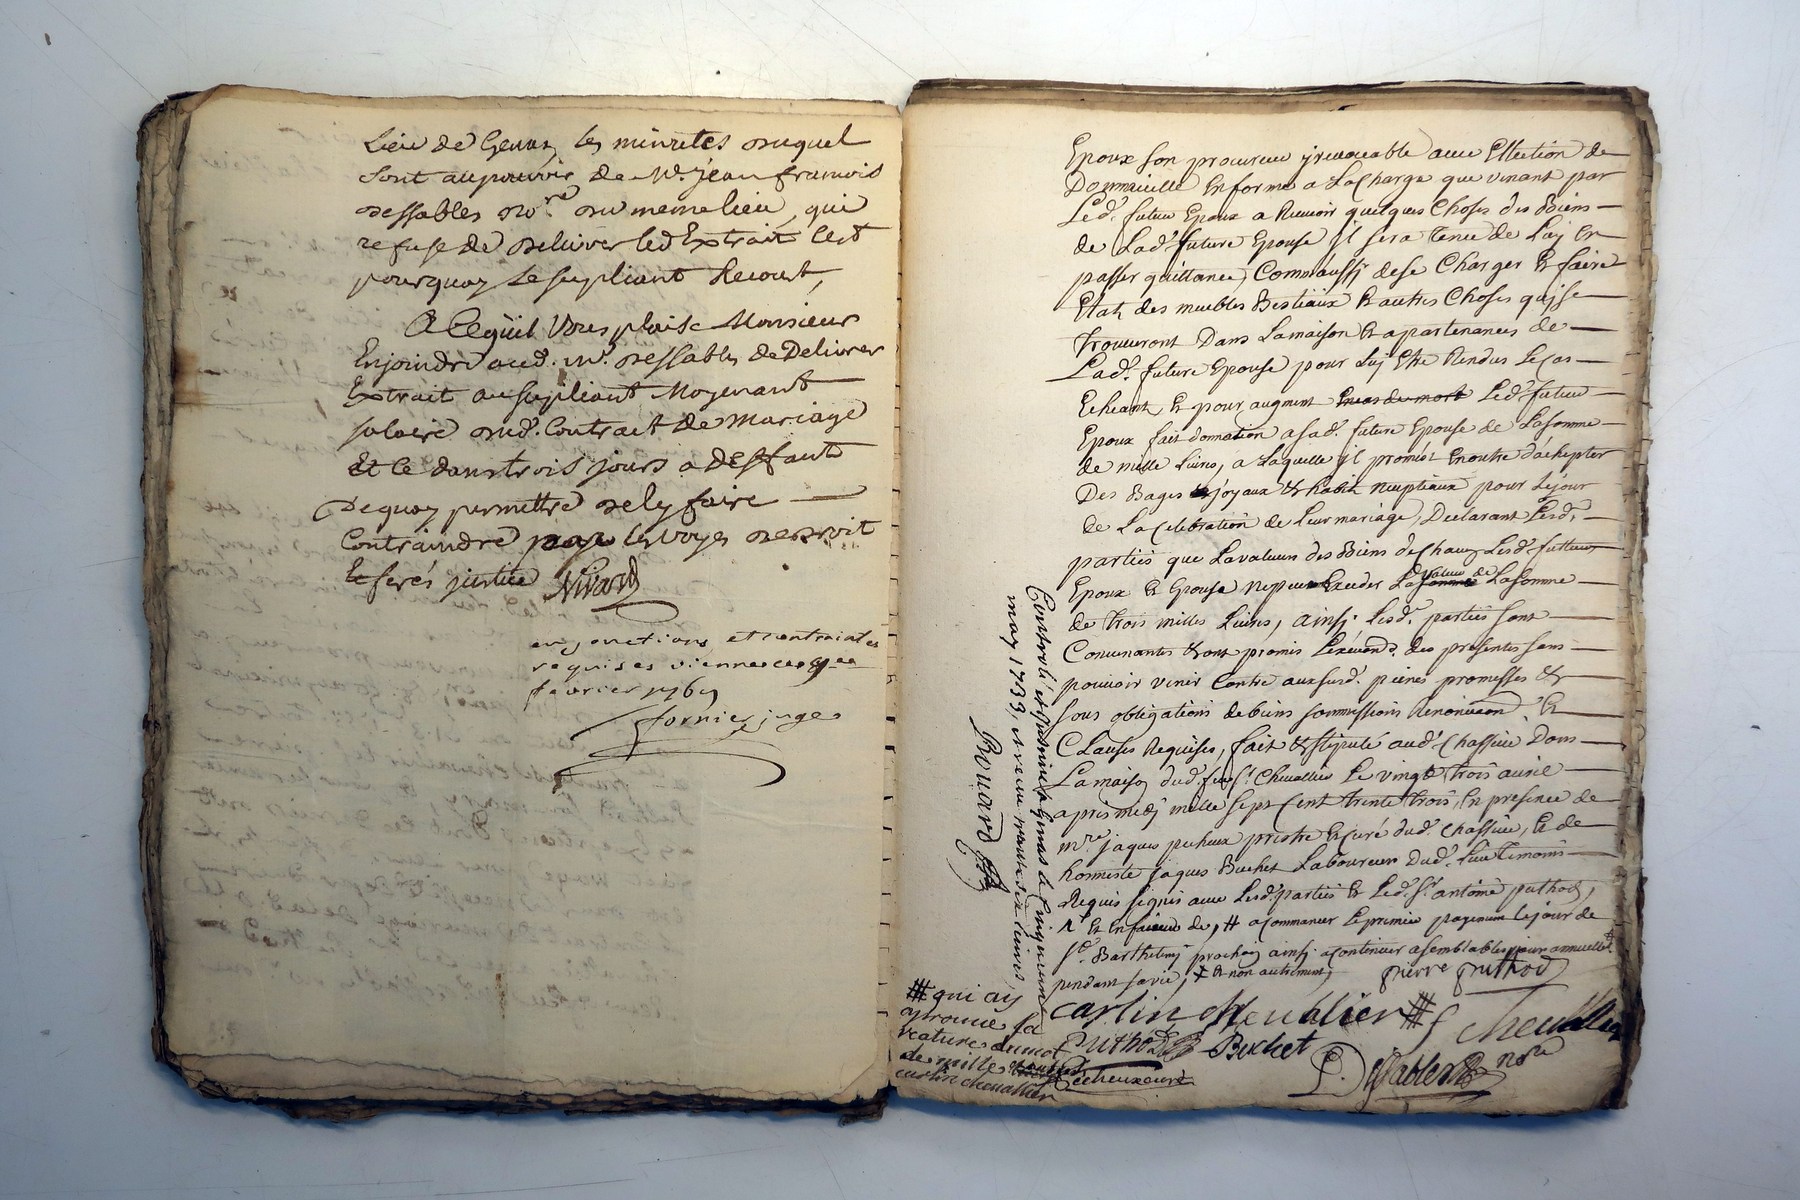 Lieu de Genas les minutes duquel
sont au pouvoir de Mr. jean francois
dessables nore. du meme lieu, qui
refuse de deliiver led Extrait C'est
pourquoy le supliant Recourt,
A Ce qüil Vous plaise Monsieur
Enjoindre aud. mr. dessables de Delivrer
Extrait au supliant Moyenant
salaire dud. Contract de Mariage
Et ce dans trois jours a deffaut
De quoy permettre de ly faire
Contraindre par les voyes de droit
Et serés justice Nivard
enjonctions et contraintes
requises vienne ce
fevrier 1769
fornier juge
Epoux son procureur yrrevocable avec Ellection de
Dommicille En forme a La Charge que venant par
Led. futur Epoux a Recevoir quelques Choses des Biens
de Lad. future Epouse Jl sera tenu de Luy En
passer quittance, Comm'aussy de se Charger Et faire
Etat, des meubles Bestiaux Et autres Choses quj se
trouveront Dans La maison Et apartenances de
Lad. future Epouse pour Luj Etre Rendus Le Cas
Echeant, Et pour augment En cas de mort Led. futur
Epoux fait donnation a sad. future Epouse de La somme
de mille Livres, a Laquelle jl promet En outre d'achepter
Des Bages joyaux Et habits nuptiaux pour Le jour
de La Celebration de Leur mariage, Declarant Lesd.
parties que La valeur des Biens de Chacun Lesd. futturs
Epoux Et Epouse ne peut Exceder La somme valeur de La Somme
de trois milles Livres, ainsj Lesd. parties sont
Convenantes Et ont promis des presentes sans
pouvoir venir Contre aux susd. peines promesses Et
sous obligations de biens sommissions Renonciaon. Et
Clauses Requises, fait Et stipulé aud. Chassieu Dans
La maison dud. feu Sr. Chevallier Le vingt trois avril
apres midj mille sept Cent trente trois, En presence de
mre. jaques pecheux prestre Et Curé dud. Chassieu, Et de
honneste jaques Buchet Laboureur Dud. Lieu temoins
Requis signés avec Lesd. parties Et Led. Sr. antoine puthod,
a Commancer Le premier le jour de
St. Barthelmy prochain ainsi a continuer a semblables jour annuellet.
pendant sa vie, Et non autrement, pierre puthod
Carlin Cheuallier # Cheuallier
Puthod Buchet
Pecheux curé
P. Dessables nore
# qui ay
aprouué la
rature du mot
de mille
carlin cheuallier
Controllé et insinué a Genas le cinquieme
may 1733, et receu trante six livres,
Rouard